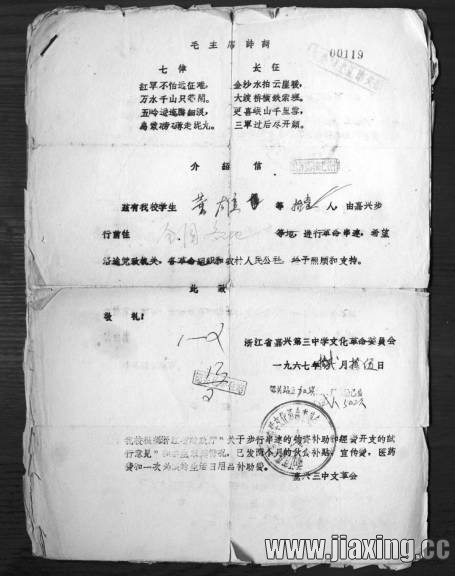 毛主席詩詞
00119
七律 长征
红军不怕远征难， 金沙水拍云崖暖，
万水千山只等闲。 大渡桥横铁索寒。
五岭逶迤腾细浪， 更喜岷山千里雪，
乌蒙磅礴走泥丸。 三军过后尽开颜。
介绍信
兹有我校学生 黄 等 人，由嘉兴步
行前往 全国 等地，进行革命串连，希望
沿途党政机关，各革命组织和农村人民公社，给予照顾和支持。
此致
敬礼！
浙江省嘉兴第三中学文化革命委员会
一九六七年 月 拾伍日
我校根据浙江 "关于步行串连的物资补助和经费开支的试
行意见" 情况，已发两个月的伙食补贴，宣传费，医药
费和一次 生活日用品补助费。
嘉兴三中文革会
www.jiaxing.cc